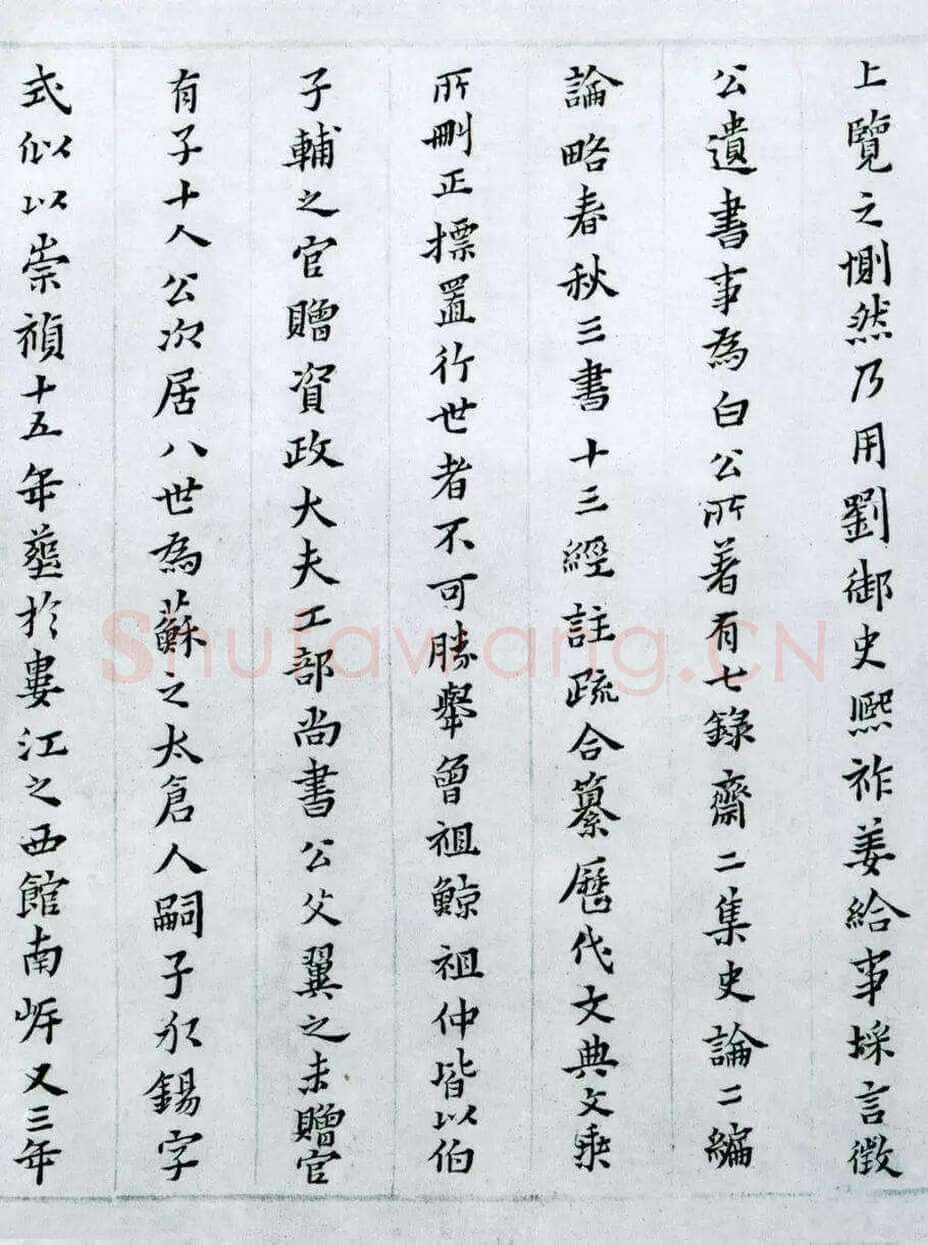 上覽之惻然乃用劉御史熙祚姜給事埰言徵
公遺書事為白公所著有七錄齋二集史論二編
論略春秋三書十三經註疏合纂歷代文典文乘
所刪正標置行世者不可勝舉曾祖鯨祖仲皆以伯
子輔之官贈資政大夫工部尚書公父翼之未贈官
有子十人公次居八世為蘇之太倉人嗣子永錫字
式似以崇禎十五年葬於婁江之西館南岸又三年
Shufawang.CN